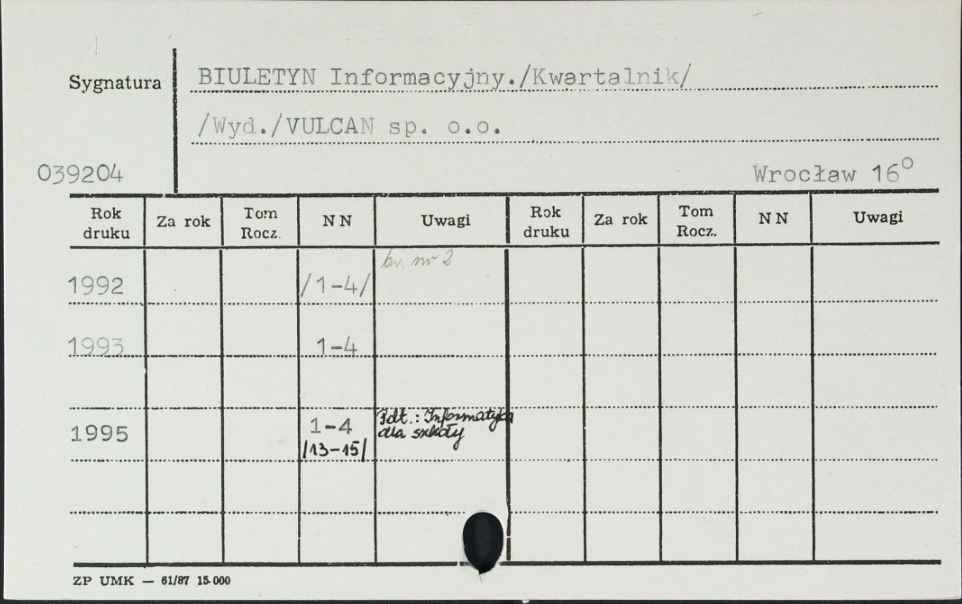 Sygnatura BIULETYN Informacyjny./Kwartalnik/
/Wyd./VULCAN sp. o.o.
039204 Wrocław 16°
Rok druku Za rok Tom Rocz. NN Uwagi Rok druku Za rok Tom Rocz. NN Uwagi
1992 /1-4/ br. nr 2
1993 1-4
1995 1-4 Pdt.: Informatyka
/13-15/ dla szkoły
ZP UMK — 61/87 15.000